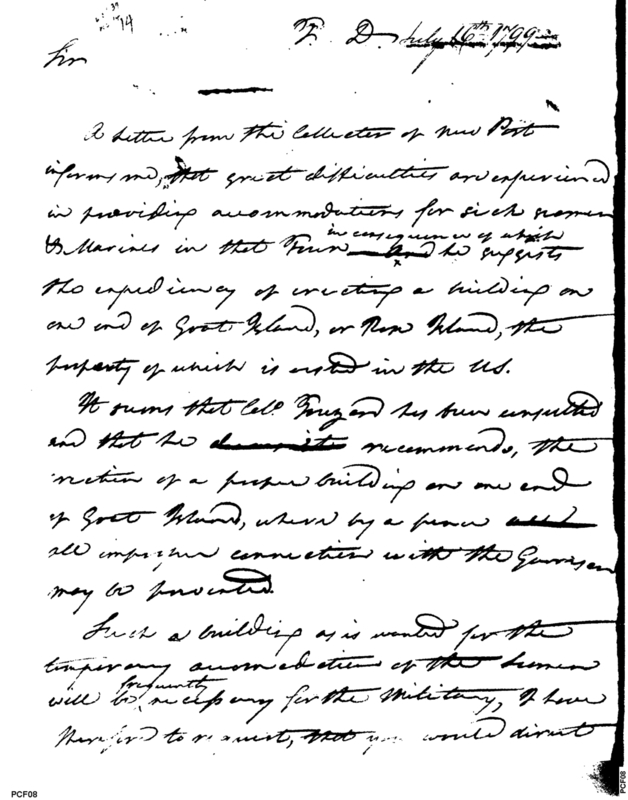 74
T. D. July 16th 1799
Sir
A Letter from the Collector of New Port
informs me, that great difficulties are experienced
in providing accommodations for sick seamen
& Marines in that Town in consequence of which and he suggests
the expediency of erecting a building on
one end of Goat Island, or Rose Island, the
property of which is vested in the US.
It seems that Colo. Touzard has been consulted
and that he recommends, the
erection of a proper building on one end
of Goat Island, where by a fence
all improper connection with the Garrison
may be prevented.
Such a building as is wanted for the
temporary accomodation of the Seamen
will be frequently necessary for the Military, I have
therefore to request, that you would direct
PCF08
PCF08